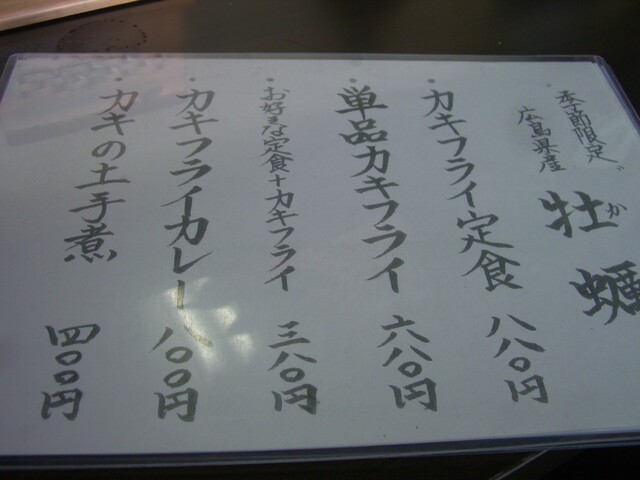 季節限定
広島県産
牡蠣
か
・カキフライ定食 八八〇円
・単品カキフライ 六八〇円
・お好きな定食＋カキフライ 三八〇円
・カキフライカレー 八〇〇円
・カキの土手煮 四〇〇円